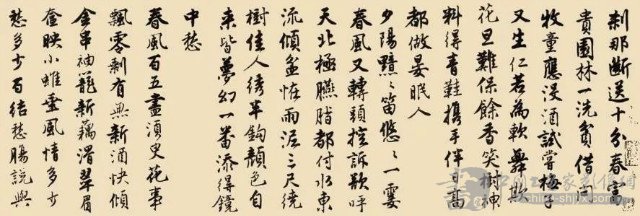 剎那斷送十分春富
貴園林一洗貧借問
牧童應沒酒試嘗梅子
又生仁若為軟舞欺
花旦難保餘香笑樹神
料得青鞋攜手伴日高
都做晏眠人
夕陽黯黯笛悠悠一霎
春風又轉頭控訴欲呼
天北極臙脂都付水東
流傾盆怪雨泥三尺繞
樹佳人繡半鉤顏色自
來皆夢幻一番添得鏡
中愁
春風百五盡須臾花事
飄零剩有無新酒快傾
金串袖籠新藕滑翠眉
奩映小風情多少
愁多少百結愁腸說與